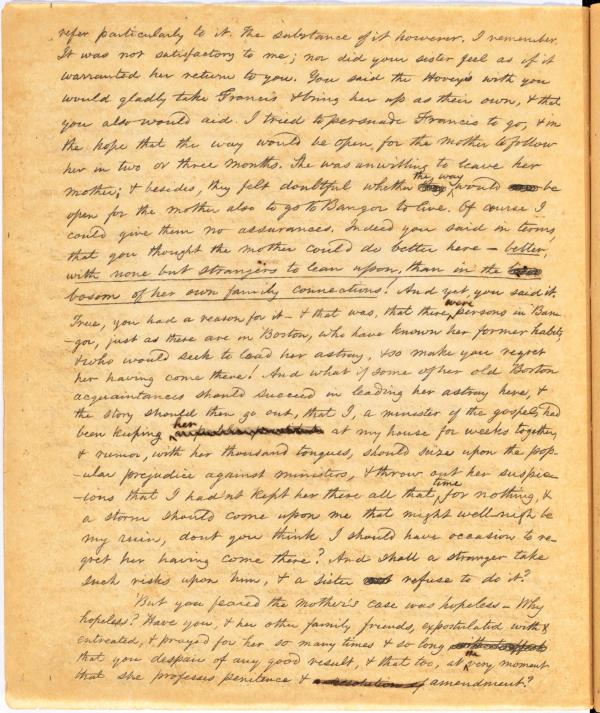 refer particularly to it. The substance of it however, I remember.
It was not satisfactory to me; nor did your sister feel as if it
warranted her return to you. You said the Hoveys with you
would gladly take Francis & bring her up as their own, & that
you also would aid. I tried to persuade Francis to go, & in
the hope that the way would be open, for the mother to follow
her in two or three months. She was unwilling to leave her
mother; & besides, they felt doubtful whether the way would be
open for the mother also to go to Bangor to live. Of course I
could give them no assurances. Indeed you said in terms,
that you thought the mother could do better here – better,
with none but strangers to lean upon, than in the
bosom of her own family connections! And yet, you said it.
True, you had a reason for it – & that was, that there were persons in Ban-
-gor, just as there are in Boston, who have known her former habits,
& who would seek to lead her astray, & so make you regret
her having come there! And what if some of her old Boston
acquaintances should succeed in leading her astray here, &
the story should then go out, that I, a minister of the gospel, had
been keeping her at my house for weeks together,
& rumor, with her thousand tongues, should seize upon the pop-
-ular prejudice against ministers, & throw out her suspic-
-ions that I hadn't kept her there all that time for nothing, &
a storm should come upon me that might well-nigh be
my ruin, dont you think I should have occasion to re-
gret her having come there? And shall a stranger take
such risks upon him, & a sister refuse to do it?
But you feared the mother's case was hopeless – Why
hopeless? Have you, & her other family friends, expostulated with &
entreated, & prayed for her so many times & so long
that you despair of any good result, & that too, at the very moment
that she professes penitence & amendment?